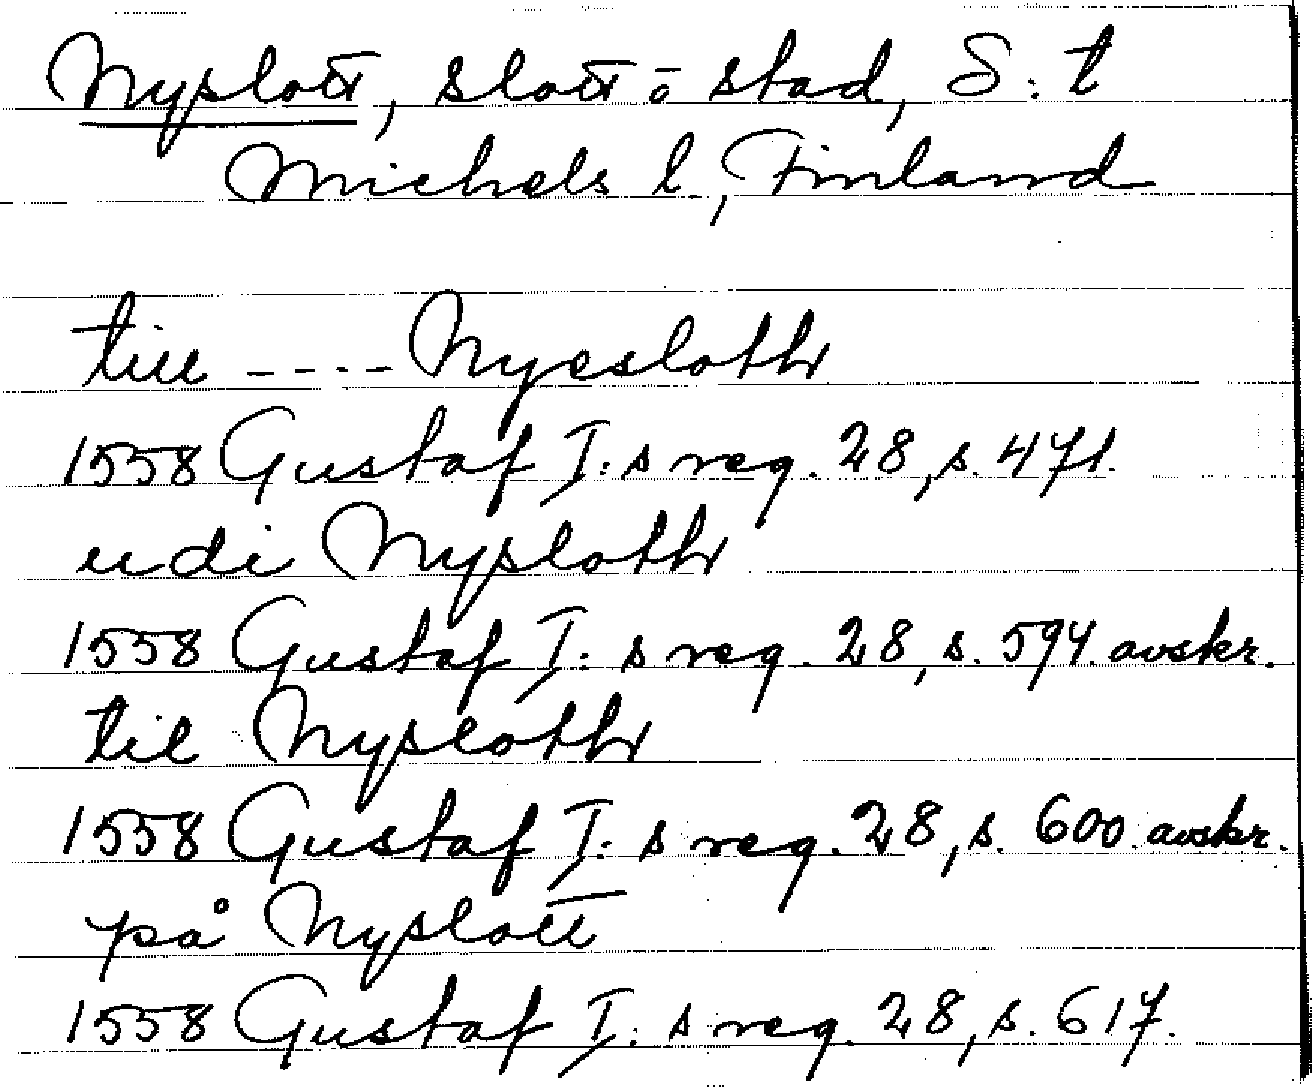 Nyslott, slott o stad, S:t
Michels l., Finland
till ---- Nyesloth
1558 Gustaf I:s reg. 28, s. 471.
udi Nysloth
1558 Gustaf I:s reg. 28, s. 594 avskr.
til Nysloth
1558 Gustaf I:s reg. 28, s. 600 avskr.
på Nyslott
1558 Gustaf I:s reg. 28, s. 617.